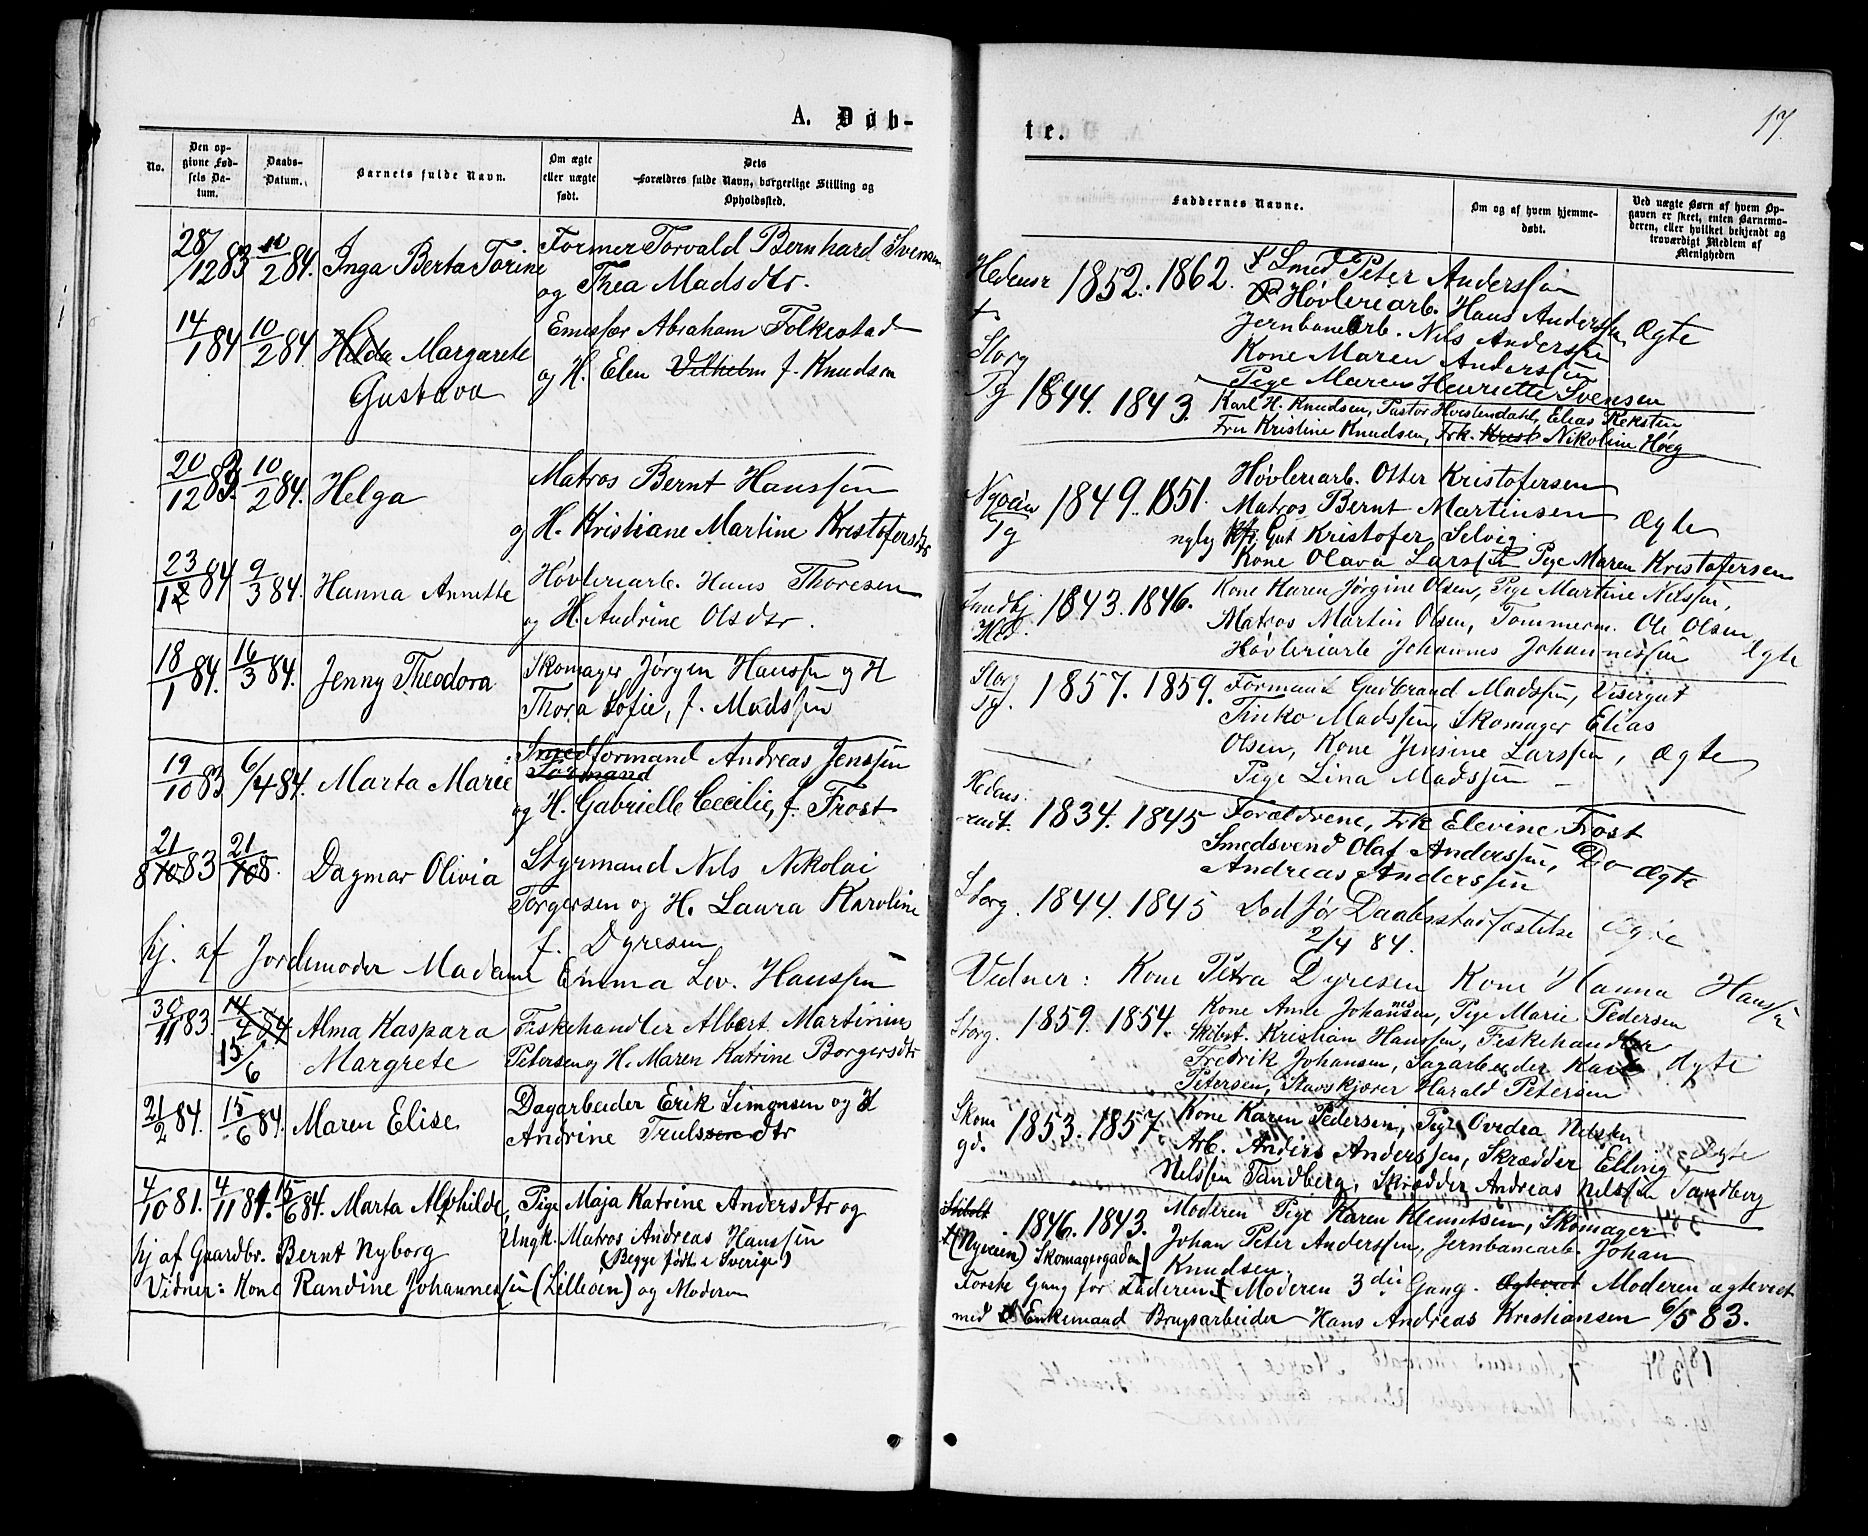 A. Døb-
No.
Den op-
givne Fød-
sels Da-
tum.
Daabs-
Datum.
Barnets fulde Navn.
Om ægte
eller uægte
født.
Dets
Forældres fulde Navn, borgerlige Stilling og
Opholdssted.
28/12 83 10/2 84. Inga Berta Torine Former Torvald Bernhard Svensen
og Thea Madsdtr.
14/1 84 10/2 84 Hilda Margarete Abraham Folkestad
Gustava og H. Elen Vilhelm f. Knudsen
20/12 83. 10/2 84. Helga Matros Bernt Hanssen
og H. Kristiane Martine Kristofersdtr
23/1 84 9/3 84. Hanna Annette Høvleriarb. Hans Thoresen
og H. Andrine Olsdtr.
18/1 84. 16/3 84. Jenny Theodora Skomager Jørgen Hanssen og H
Thora Sofie, f. Madssen
19/10 83 6/4 84. Marta Marie Smedformand Andreas Jenssen
Formand
og H. Gabrielle Cecilie, f. Frost
21/8 83 21/8. Dagmar Olivia Styrmand Nils Nikolai
Torgersen og H. Laura Karoline
f. Dyresen
hj. af Jordemoder Madame Emma Lov. Hanssen
30/11 83. 14/4 84 Alma Kaspara Fiskehandler Albert Martinius
15/6 Margrete Petersen og H. Maren Katrine Borgersdtr
21/2 84. 15/6 84. Maren Elise Dagarbeider Erik Simonsen og H
Andrine Trulssen dtr
4/10 81. 4/11 81. 15/6 84. Marta Mathilde, Pige Maja Katrine Andersdtr og
Ungk. Matros Andreas Hanssen
hj af Gaardbr. Bernt Nyborg (Begge født i Sverige)
Vidner: Kone Randine Johannessen (Lilleøen) og Moderen
te.
17.
Faddernes Navne.
Om og af hvem hjemme-
døbt.
Ved uægte Børn af hvem Op-
gaven er skeet, enten Barnemo-
deren, eller hvilket bekjendt og
troværdigt Medlem af
Menigheden
1852. 1862. Smed Peter Anderssen
Høvleriarb. Hans Anderssen Ægte
Jernbanearb. Nils Anderssen
Kone Maren Anderssen
Pige Maren Henriette Svensen
Storg
Tg 1844. 1843. Karl H. Knudsen, Pastor Hvistendahl, Elias Reksten
Fru Kristine Knudsen, Frk. Krist Nikoline Høeg
Høvleriarb. Otter Kristofersen
Tg 1849. 1851. Matros Bernt Martinsen Ægte
Gut Kristofer Selvig
Kone Olava Larssen Pige Maren Kristofersen
1843. 1846. Kone Karen Jørgine Olsen, Pige Martine Nilssen,
Matros Martin Olsen, Tømmerm. Ole Olsen
Høvleriarb Johannes Johannessen Ægte
Storg
Tg. 1857. 1859. Formand Gudbrand Madssen, Visergut
Tinko Madssen, Skomager Elias
Olsen, Kone Jensine Larssen, Ægte
Pige Lina Madssen
Hedens-
rudt. 1834. 1845 Forældrene, Frk Elevine Frost
Smedsvend Olaf Anderssen, Do Ægte
Andreas Anderssen
Storg. 1844. 1845 Død før Daabsstadfæstelse Ægte
2/4 84.
Vidner: Kone Petra Dyresen Kone Hanna Hanssen
Kone Anne Johannesen, Pige Marie Pedersen
Storg. 1859. 1854. Skibst. Kristian Hanssen, Fiskehandler
Fredrik Johansen, Sagarbeider Karl Ægte
Petersen, Stavskjærer Harald Petersen
Skom
gd. 1853. 1857 Kone Karen Pedersen, Pige Ovedia Nilssen
Arb. Anders Anderssen, Skrædder Ellvig Ægte
Nilssen Tandberg, Skrædder Andreas Nilssen Tandberg
1846. 1843. Moderen Pige Karen Klemetsen, Skomager
(Nyveien) Skomagergaden Johan Peter Anderssen, Jernbanearb. Johan
Knudsen.
Første Gang for Faderen Moderen 3die Gang. Ægteviet Moderen ægteviet
med Enkemand Brugsarbeider Hans Andreas Kristiansen 6/5 83.